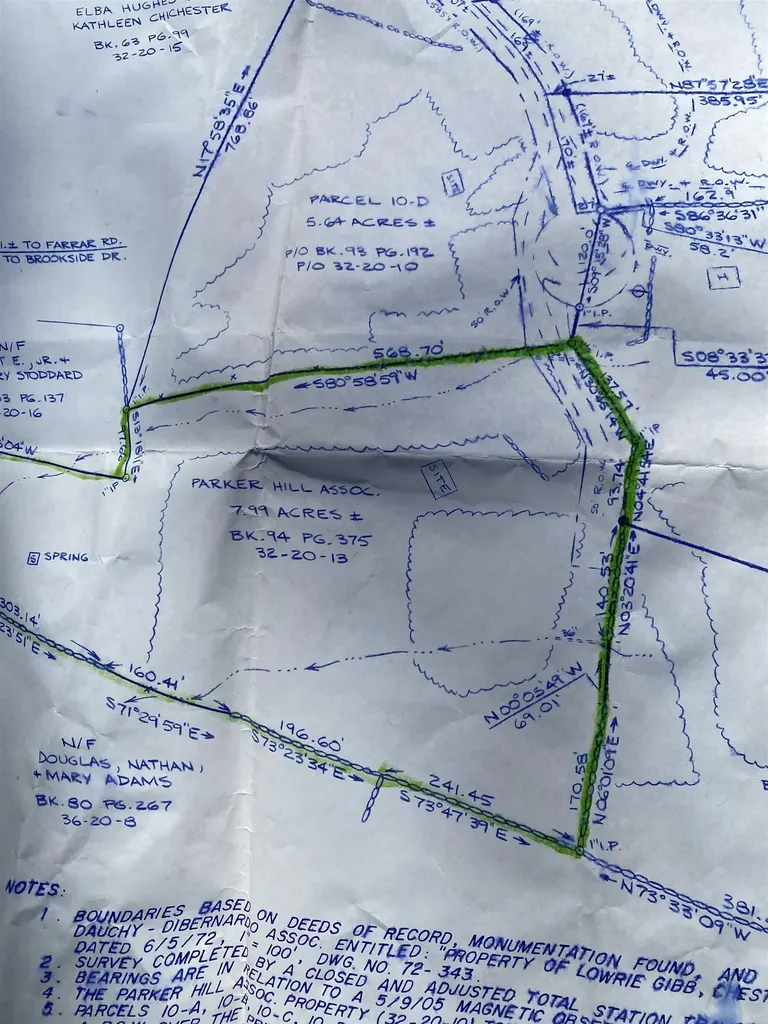 ELBA HUGHES
KATHLEEN CHICHESTER
BK. 63 PG. 99
32-20-15
N17°58'35"E
768.86'
27'±
N87°57'28"E
385.95'
(169'±
169'±
(169'± R.O.W.
70'±
DWY. + R.O.W.
℄ DWY. + R.O.W.
162.9'
S86°36'31"
S80°33'13"W
58.2'
DWY.
SITE
PARCEL 10-D
5.64 ACRES ±
P/O BK. 93 PG. 192
P/O 32-20-10
120.0'
50' R.O.W.
H
1" I.P.
1.± TO FARRAR RD.
TO BROOKSIDE DR.
N/F
T E., JR. +
RY STODDARD
3 PG. 137
-20-16
04"W
1" I.P.
1" I.P.
568.70'
S80°58'59"W
I.P.
S08°33'3
45.00'
137.57'
I.P.
50' R.O.W.
93.74'
N04°41'34"E
SITE
PARKER HILL ASSOC.
7.99 ACRES ±
BK. 94 PG. 375
32-20-13
S SPRING
140.53'
N03°20'41"E
303.14'
23'51"E
160.41'
S71°29'59"E
N00°05'49"W
69.01'
196.60'
S73°23'34"E
241.45
S73°47'39"E
170.58'
N06°01'09"E
1" I.P.
N73°33'09"W
381.
N/F
DOUGLAS, NATHAN,
+ MARY ADAMS
BK. 80 PG. 267
36-20-8
NOTES:
1. BOUNDARIES BASED ON DEEDS OF RECORD, MONUMENTATION FOUND, AND
DAUCHY-DIBERNARDO ASSOC. ENTITLED: "PROPERTY OF LOWRIE GIBB, CHEST
DATED 6/5/72, 1"=100', DWG. NO. 72-343.
2. SURVEY COMPLETED BY A CLOSED AND ADJUSTED TOTAL STATION
3. BEARINGS ARE IN RELATION TO A 5/9/05 MAGNETIC OBS
4. THE PARKER HILL ASSOC. PROPERTY (32-20-10)
5. PARCELS 10-A, 10-B, 10-C, 10